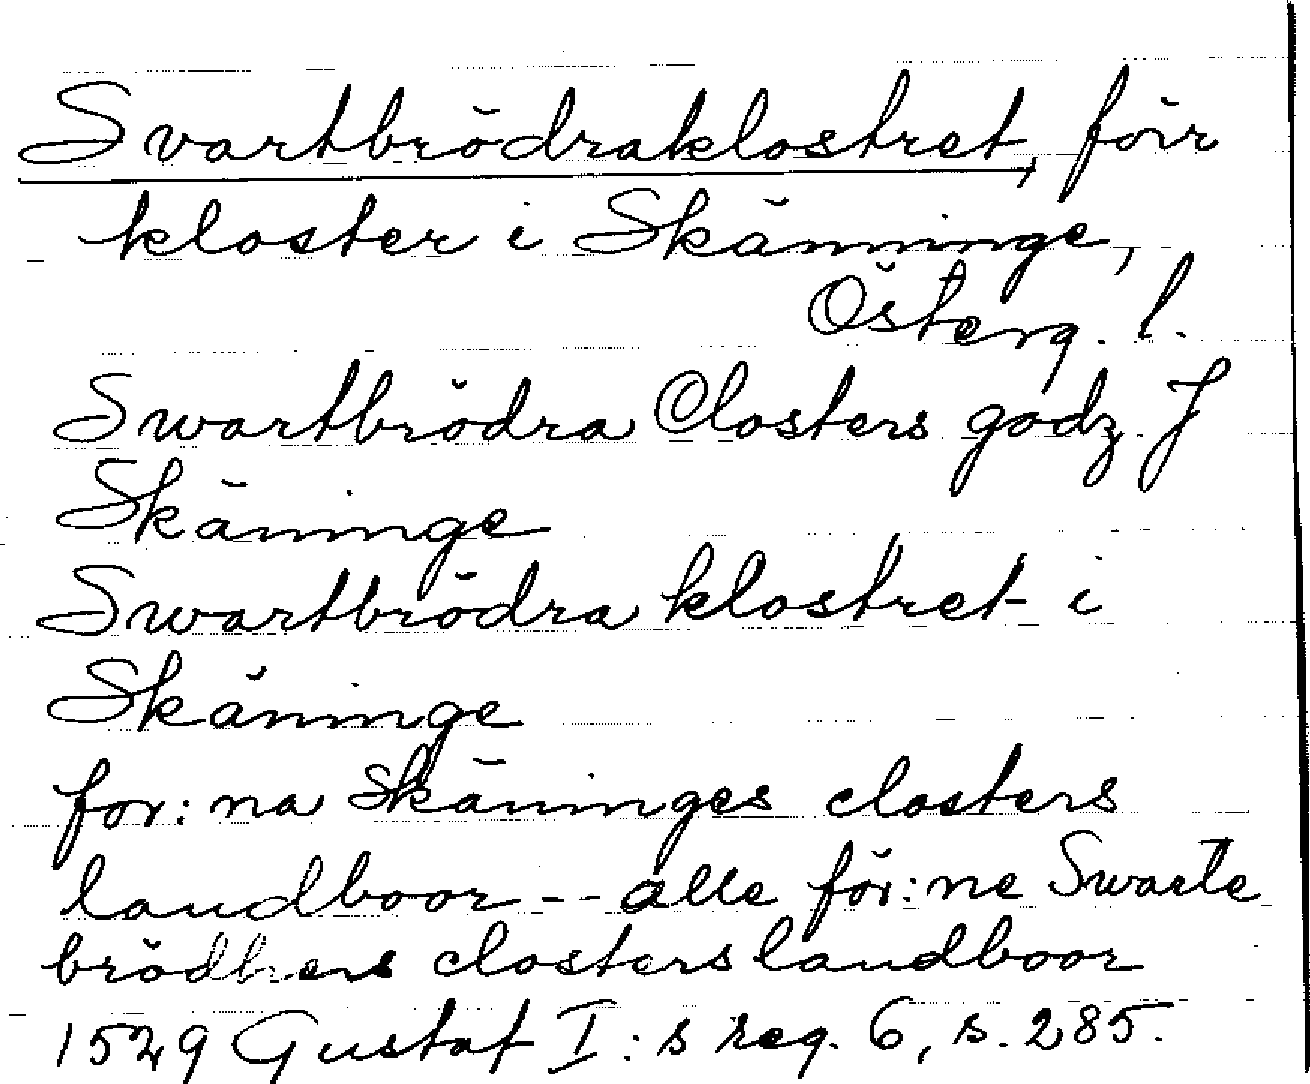 Svartbrödraklostret, förr
kloster i Skänninge,
Österg. l.
Swartbrödra Closters godz J
Skäninge
Swartbrödra klostret i
Skäninge
for:na Skäninges closters
landboor -- alle för:ne Swarte
brödhers closters landboor
1529 Gustaf I:s reg. 6, s. 285.